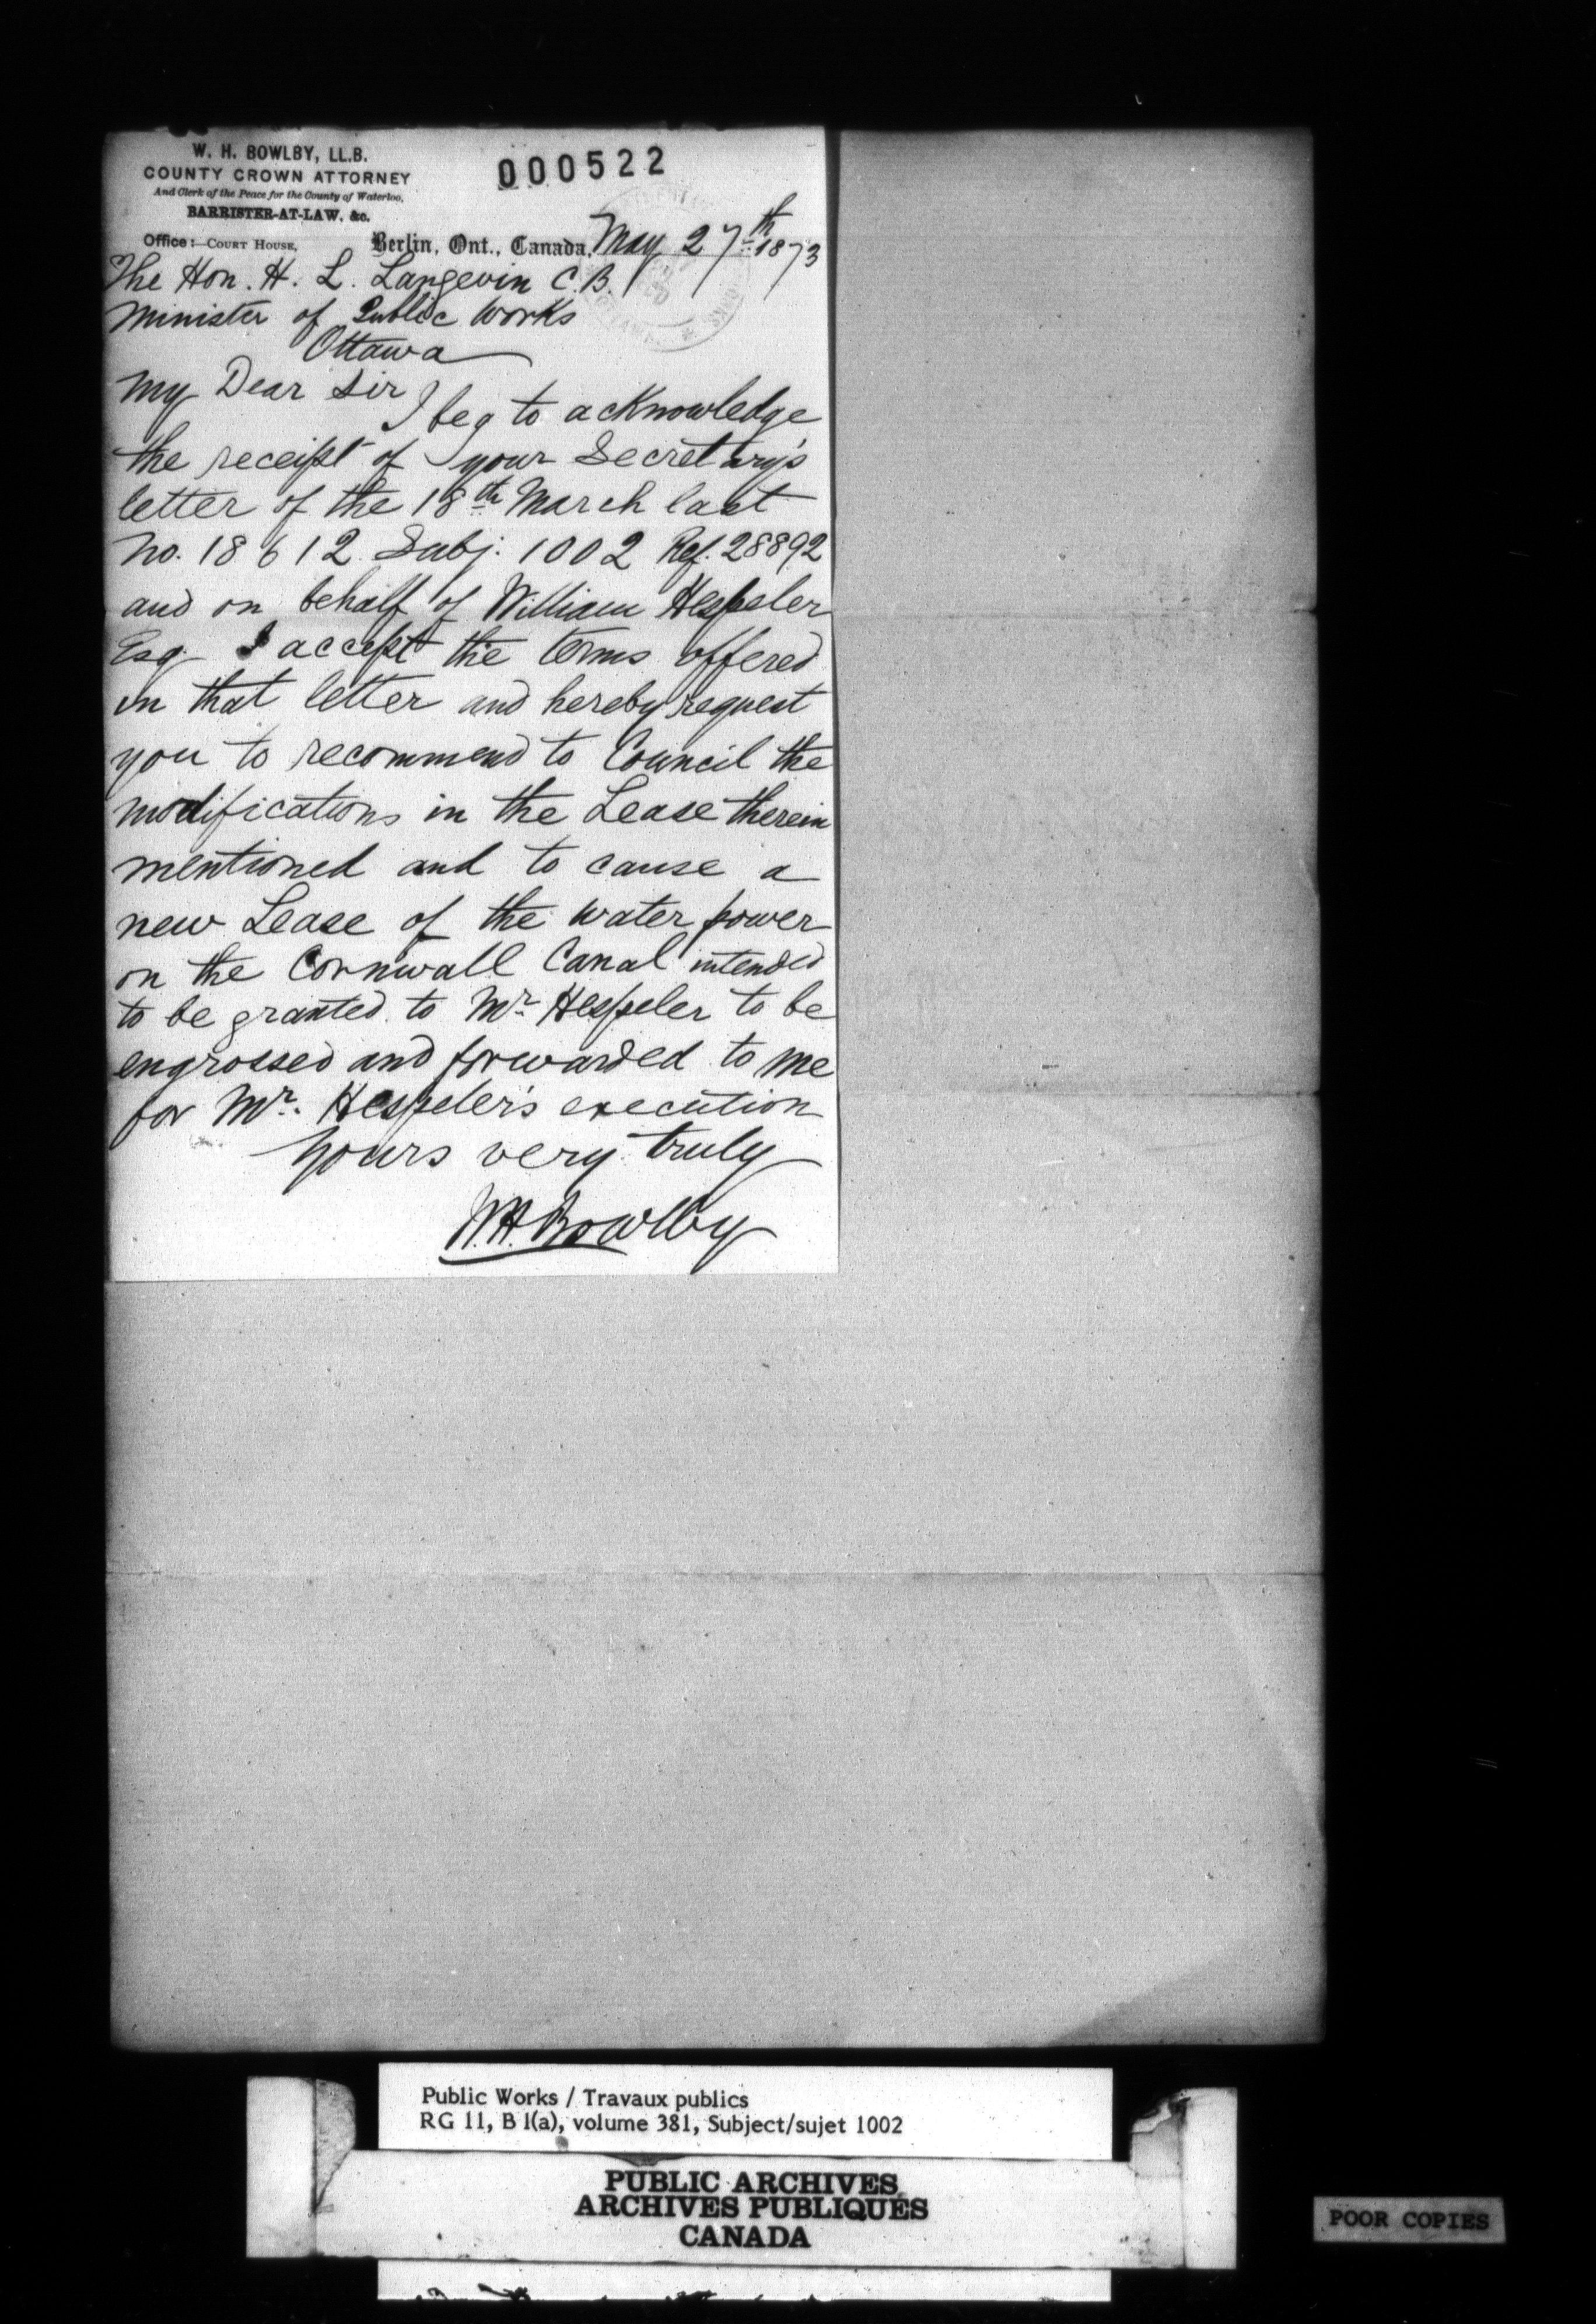 W. H. BOWLBY, LL.B.
COUNTY CROWN ATTORNEY
And Clerk of the Peace for the County of Waterloo,
BARRISTER-AT-LAW, &c.
000522
Office:—COURT HOUSE,
Berlin, Ont., Canada, May 27th 1873
The Hon. H. L. Langevin C.B.
Minister of Public Works
Ottawa
My Dear Sir
I beg to acknowledge
the receipt of your Secretary's
letter of the 18th March last
No. 18612 Subj. 1002 Ref. 28892
and on behalf of William Hespeler
Esq. I accept the terms offered
in that letter and hereby request
you to recommend to Council the
modifications in the Lease therein
mentioned and to cause a
new Lease of the water power
on the Cornwall Canal intended
to be granted to Mr. Hespeler to be
engrossed and forwarded to me
for Mr. Hespeler's execution
Yours very truly
W.H. Bowlby
Public Works / Travaux publics
RG 11, B 1(a), volume 381, Subject/sujet 1002
PUBLIC ARCHIVES
ARCHIVES PUBLIQUES
CANADA
POOR COPIES